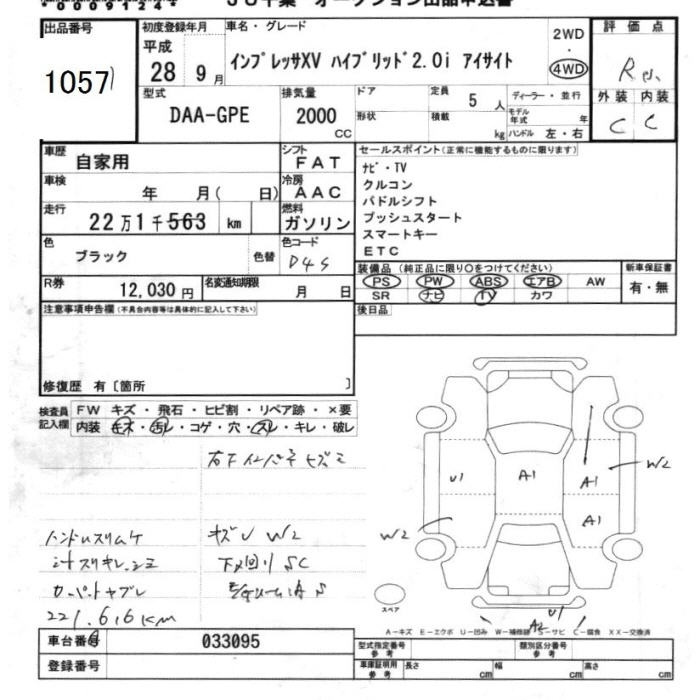 *00091244*
出品番号
1057
初度登録年月
平成
28 9月
車名・グレード
インプレッサXV ハイブリッド2.0i アイサイト
2WD
・
4WD
評価点
R
外装 内装
C C
型式
DAA-GPE
排気量
2000
CC
ドア
形状
定員
5人
積載
kg
ディーラー・並行
モデル年式 年
ハンドル 左・右
車歴
自家用
シフト
FAT
車検
年 月( 日)
冷房
AAC
走行
22万1千563 km
燃料
ガソリン
色
ブラック
色替
色コード
D4S
セールスポイント(正常に機能するものに限ります)
ナビ・TV
クルコン
パドルシフト
プッシュスタート
スマートキー
ETC
装備品(純正品に限り○をつけてください)
PS PW ABS エアB AW
SR ナビ TV カワ
新車保証書
有・無
R券
12,030円
名変通知期限
月 日
後日品
注意事項申告欄(不具合内容等は具体的に記入して下さい)
修復歴 有〔箇所 〕
検査員記入欄
FW キズ・飛石・ヒビ割・リペア跡・×要
内装 キズ・汚レ・コゲ・穴・スレ・キレ・破レ
キズU W2
下廻りSC
221,616KM
U1
A1
A1
A1
W2
W2
U1
A2
スペア
A-キズ E-エクボ U-凹み W-補修跡 S-サビ C-腐食 XX-交換済
車台番号
033095
登録番号
型式指定番号
参考
類別区分番号
参考
車庫証明用
参考
長さ cm
幅 cm
高さ cm